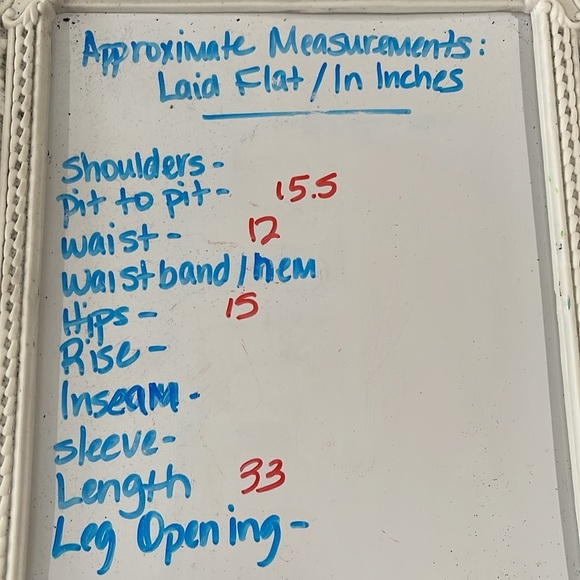 Approximate Measurements:
Laid Flat/In Inches
Shoulders-
pit to pit- 15.5
waist- 12
waistband/hem
Hips- 15
Rise-
Inseam-
sleeve-
Length 33
Leg Opening-